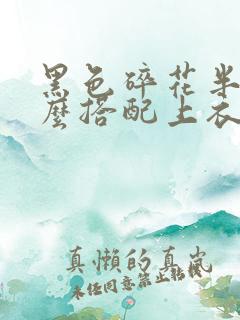 黑色碎花半
麽搭配上衣
真懒的真岚
未经同意禁止转载